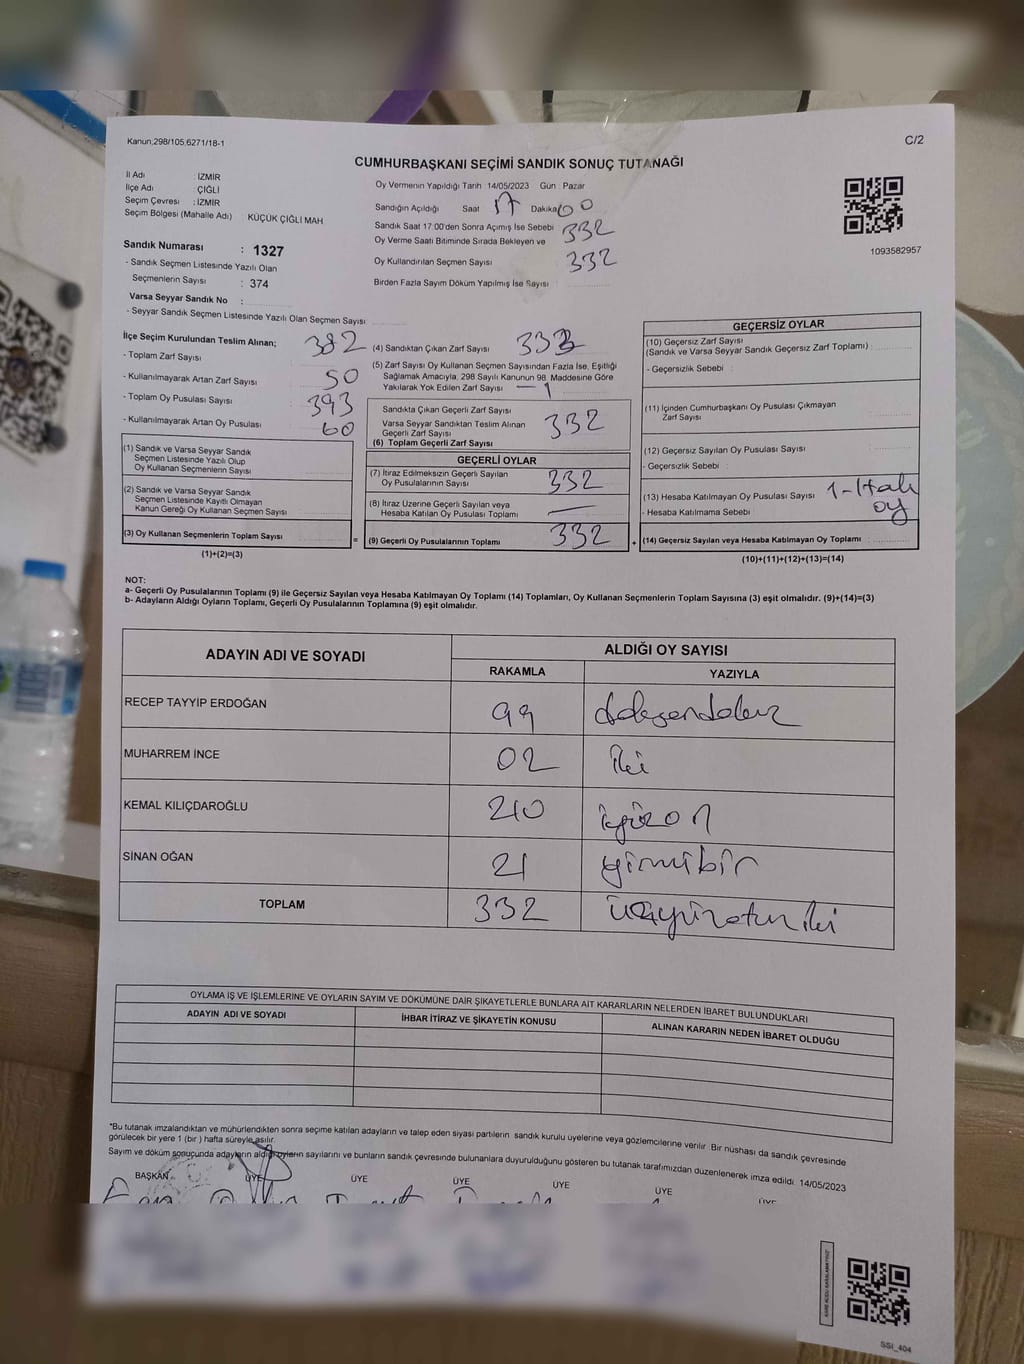 Kanun;298/105;6271/18-1
C/2
CUMHURBAŞKANI SEÇİMİ SANDIK SONUÇ TUTANAĞI
İl Adı : İZMİR
İlçe Adı : ÇİĞLİ
Seçim Çevresi : İZMİR
Seçim Bölgesi (Mahalle Adı) : KÜÇÜK ÇİĞLİ MAH
Sandık Numarası : 1327
- Sandık Seçmen Listesinde Yazılı Olan
Seçmenlerin Sayısı : 374
Varsa Seyyar Sandık No :
- Seyyar Sandık Seçmen Listesinde Yazılı Olan Seçmen Sayısı :
Oy Vermenin Yapıldığı Tarih : 14/05/2023 Gün : Pazar
Sandığın Açıldığı Saat 17 Dakika 00
Sandık Saat 17:00'den Sonra Açımış İse Sebebi 332
Oy Verme Saati Bitiminde Sırada Bekleyen ve
Oy Kullandırılan Seçmen Sayısı 332
Birden Fazla Sayım Döküm Yapılmış İse Sayısı :
1093582957
İlçe Seçim Kurulundan Teslim Alınan;
- Toplam Zarf Sayısı 382
- Kullanılmayarak Artan Zarf Sayısı 50
- Toplam Oy Pusulası Sayısı 393
- Kullanılmayarak Artan Oy Pusulası 60
(1) Sandık ve Varsa Seyyar Sandık
Seçmen Listesinde Yazılı Olup
Oy Kullanan Seçmenlerin Sayısı
(2) Sandık ve Varsa Seyyar Sandık
Seçmen Listesinde Kayıtlı Olmayan
Kanun Gereği Oy Kullanan Seçmen Sayısı
(3) Oy Kullanan Seçmenlerin Toplam Sayısı
(1)+(2)=(3)
=
(4) Sandıktan Çıkan Zarf Sayısı 333
(5) Zarf Sayısı Oy Kullanan Seçmen Sayısından Fazla İse, Eşitliği
Sağlamak Amacıyla, 298 Sayılı Kanunun 98. Maddesine Göre
Yakılarak Yok Edilen Zarf Sayısı - 1
Sandıkta Çıkan Geçerli Zarf Sayısı
Varsa Seyyar Sandıktan Teslim Alınan
Geçerli Zarf Sayısı
(6) Toplam Geçerli Zarf Sayısı 332
GEÇERLİ OYLAR
(7) İtiraz Edilmeksizin Geçerli Sayılan
Oy Pusulalarının Sayısı 332
(8) İtiraz Üzerine Geçerli Sayılan veya
Hesaba Katılan Oy Pusulası Toplamı —
(9) Geçerli Oy Pusulalarının Toplamı 332
+
GEÇERSİZ OYLAR
(10) Geçersiz Zarf Sayısı
(Sandık ve Varsa Seyyar Sandık Geçersiz Zarf Toplamı) :
- Geçersizlik Sebebi :
(11) İçinden Cumhurbaşkanı Oy Pusulası Çıkmayan
Zarf Sayısı
(12) Geçersiz Sayılan Oy Pusulası Sayısı
- Geçersizlik Sebebi :
(13) Hesaba Katılmayan Oy Pusulası Sayısı 1-
- Hesaba Katılmama Sebebi oy
(14) Geçersiz Sayılan veya Hesaba Katılmayan Oy Toplamı
(10)+(11)+(12)+(13)=(14)
NOT:
a- Geçerli Oy Pusulalarının Toplamı (9) ile Geçersiz Sayılan veya Hesaba Katılmayan Oy Toplamı (14) Toplamları, Oy Kullanan Seçmenlerin Toplam Sayısına (3) eşit olmalıdır. (9)+(14)=(3)
b- Adayların Aldığı Oyların Toplamı, Geçerli Oy Pusulalarının Toplamına (9) eşit olmalıdır.
ADAYIN ADI VE SOYADI
ALDIĞI OY SAYISI
RAKAMLA YAZIYLA
RECEP TAYYİP ERDOĞAN 99 doksandokuz
MUHARREM İNCE 02 iki
KEMAL KILIÇDAROĞLU 210 ikiyüzon
SİNAN OĞAN 21 yirmibir
TOPLAM 332 üçyüzotuziki
OYLAMA İŞ VE İŞLEMLERİNE VE OYLARIN SAYIM VE DÖKÜMÜNE DAİR ŞİKAYETLERLE BUNLARA AİT KARARLARIN NELERDEN İBARET BULUNDUKLARI
ADAYIN ADI VE SOYADI İHBAR İTİRAZ VE ŞİKAYETİN KONUSU ALINAN KARARIN NEDEN İBARET OLDUĞU
*Bu tutanak imzalandıktan ve mühürlendikten sonra seçime katılan adayların ve talep eden siyasi partilerin sandık kurulu üyelerine veya gözlemcilerine verilir. Bir nüshası da sandık çevresinde
görülecek bir yere 1 (bir ) hafta süreyle asılır.
Sayım ve döküm sonucunda adayların aldığı oyların sayılarını ve bunların sandık çevresinde bulunanlara duyurulduğunu gösteren bu tutanak tarafımızdan düzenlenerek imza edildi. 14/05/2023
BAŞKAN ÜYE ÜYE ÜYE ÜYE ÜYE ÜYE
SSI_404